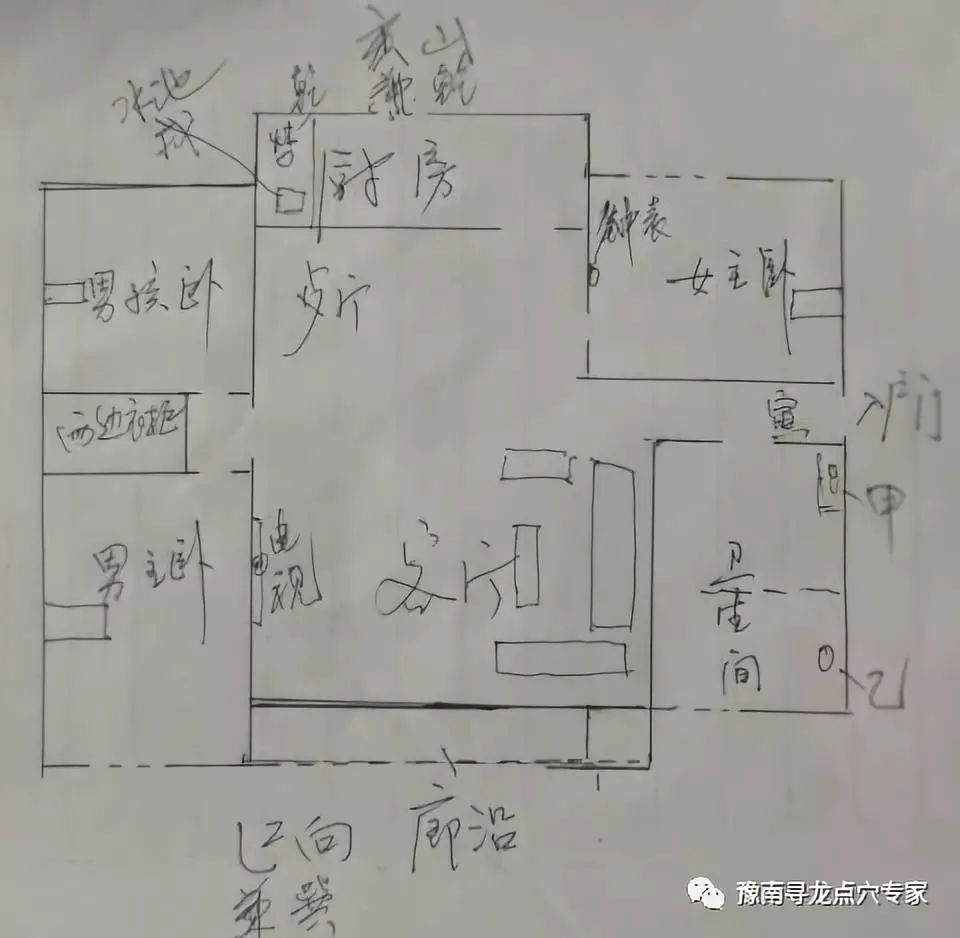 亥山
兼乾
水池
乾
厨房
钟表
男孩卧
女主卧
入户门
寅
两边衣柜
甲
男主卧
电视
客厅
卫生间
乙
巳向
兼巽
廊沿
豫南寻龙点穴专家